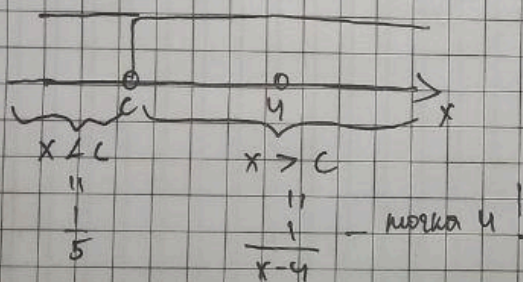 C 4 x
x < C x > C
" "
1/5 1/(x-4) - точка 4